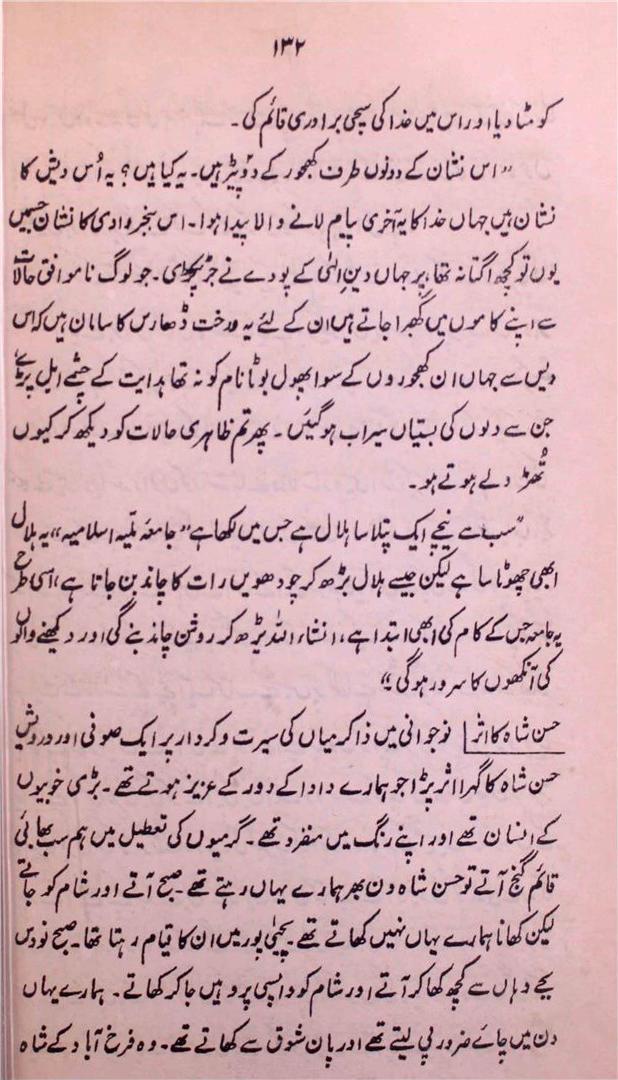 ۱۳۲
کو مٹا دیا اور اس میں خدا کی سچی برادری قائم کی۔
”اس نشان کے دونوں طرف کھجور کے دو پیڑ ہیں۔ یہ کیا ہیں؟ یہ اُس دیش کا
نشان ہیں جہاں خدا کا یہ آخری پیام لانے والا پیدا ہوا۔ اس بنجر وادی کا نشان جسمیں
یوں تو کچھ اگتا نہ تھا، پر جہاں دینِ الٰہی کے پودے نے جڑ پکڑی۔ جو لوگ ناموافق حالات
سے اپنے کاموں میں گھبرا جاتے ہیں ان کے لئے یہ درخت ڈھارس کا سامان ہیں کہ اس
دیس سے جہاں ان کھجوروں کے سوا پھول بوٹا نام کو نہ تھا ہدایت کے چشمے ابل پڑے
جن سے دلوں کی بستیاں سیراب ہوگئیں۔ پھر تم ظاہری حالات کو دیکھ کر کیوں
تُھڑ دلے ہوتے ہو۔
”سب سے نیچے ایک پتلا سا ہلال ہے جس میں لکھا ہے ”جامعہ ملیہ اسلامیہ“ یہ ہلال
ابھی چھوٹا سا ہے لیکن جیسے ہلال بڑھ کر چودھویں رات کا چاند بن جاتا ہے، اسی طرح
یہ جامعہ جس کے کام کی ابھی ابتدا ہے، انشاء اللہ بڑھ کر روشن چاند بنے گی اور دیکھنے والوں
کی آنکھوں کا سرور ہوگی“۔
حسن شاہ کا اثر نوجوانی میں ذاکر میاں کی سیرت و کردار پر ایک صوفی اور درویش
حسن شاہ کا گہرا اثر پڑا جو ہمارے دادا کے دور کے عزیز ہوتے تھے۔ بڑی خوبیوں
کے انسان تھے اور اپنے رنگ میں منفرد تھے۔ گرمیوں کی تعطیل میں ہم سب بھائی
قائم گنج آتے تو حسن شاہ دن بھر ہمارے یہاں رہتے تھے۔ صبح آتے اور شام کو جاتے
لیکن کھانا ہمارے یہاں نہیں کھاتے تھے۔ یحییٰ پور میں ان کا قیام رہتا تھا۔ صبح نو دس
بجے وہاں سے کچھ کھا کر آتے اور شام کو واپسی پر وہیں جا کر کھاتے۔ ہمارے یہاں
دن میں چائے ضرور پی لیتے تھے اور پان شوق سے کھاتے تھے۔ وہ فرخ آباد کے شاہ